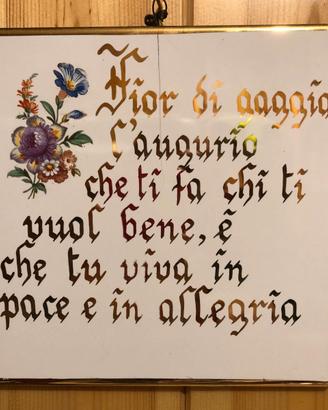 Fior di gaggia
l'augurio
che ti fa chi ti
vuol bene, è
che tu viva in
pace e in allegria